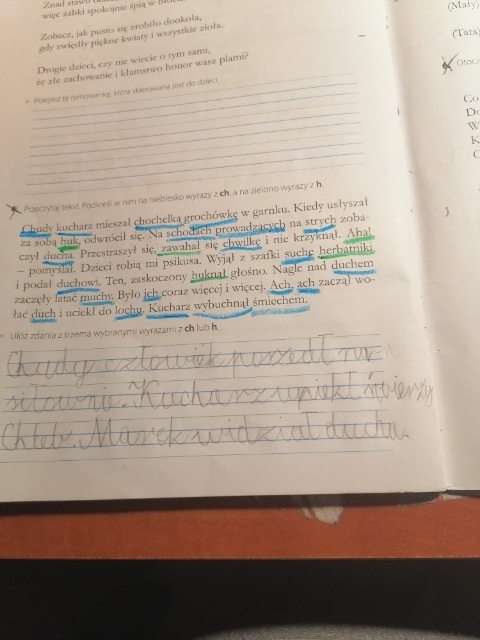 więc żabki spokojnie śpią w
Zobacz, jak pusto się zrobiło dookoła,
gdy zwiędły piękne kwiaty i wszystkie zioła.
Drogie dzieci, czy nie wiecie o tym sami,
że złe zachowanie i kłamstwo honor wasz plami?
Przepisz tę rymowankę, która skierowana jest do dzieci.
Przeczytaj tekst. Podkreśl w nim na niebiesko wyrazy z ch, a na zielono wyrazy z h.
Chudy kucharz mieszał chochelką grochówkę w garnku. Kiedy usłyszał
za sobą huk, odwrócił się. Na schodach prowadzących na strych zoba-
czył ducha. Przestraszył się, zawahał się chwilkę i nie krzyknął. Aha!
– pomyślał. Dzieci robią mi psikusa. Wyjął z szafki suche herbatniki
i podał duchowi. Ten, zaskoczony huknął głośno. Nagle nad duchem
zaczęły latać muchy. Było ich coraz więcej i więcej. Ach, ach zaczął wo-
łać duch i uciekł do lochu. Kucharz wybuchnął śmiechem.
Ułóż zdania z trzema wybranymi wyrazami z ch lub h.
Chudy człowiek poszedł na
siłownie. Kucharz upiekł świerzy
Chleb. Marek widział ducha.
(Mały)
(Tata)
Otocz
Co
Do
W
K